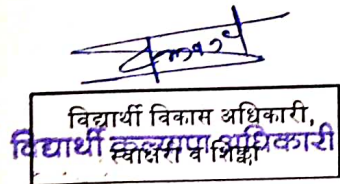 विद्यार्थी विकास अधिकारी,
विद्यार्थी कल्याण अधिकारी
स्वाक्षरी व शिक्का